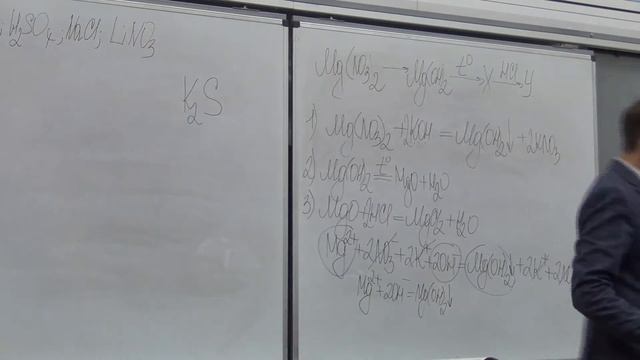 ; H₂SO₄; NaCl; LiNO₃
K₂S
Mg(NO₃)₂ → Mg(OH)₂ —t°→ X —HCl→ Y
1) Mg(NO₃)₂ + 2KOH = Mg(OH)₂↓ + 2KNO₃
2) Mg(OH)₂ =t°= MgO + H₂O
3) MgO + 2HCl = MgCl₂ + H₂O
Mg²⁺ + 2NO₃⁻ + 2K⁺ + 2OH⁻ = Mg(OH)₂↓ + 2K⁺ + 2
Mg²⁺ + 2OH⁻ = Mg(OH)₂↓